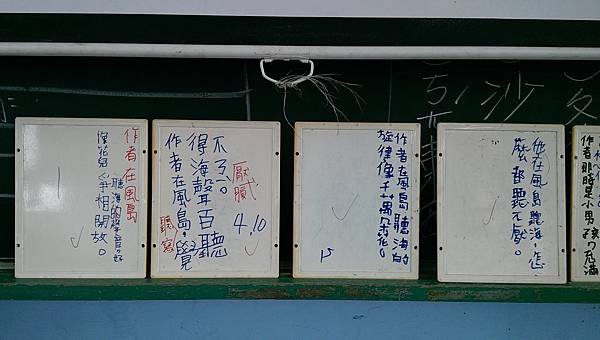 作者在風島
聽海的聲音。好
像花兒爭相開放。
1
作者在風島,覺
得海聲百聽
不了。
厭膩
4.10
作者在風島聽海的
旋律像千萬朵花。
15
他在風島聽海,怎
麼都聽不厭。
作者那時是小男孩
充滿
沙